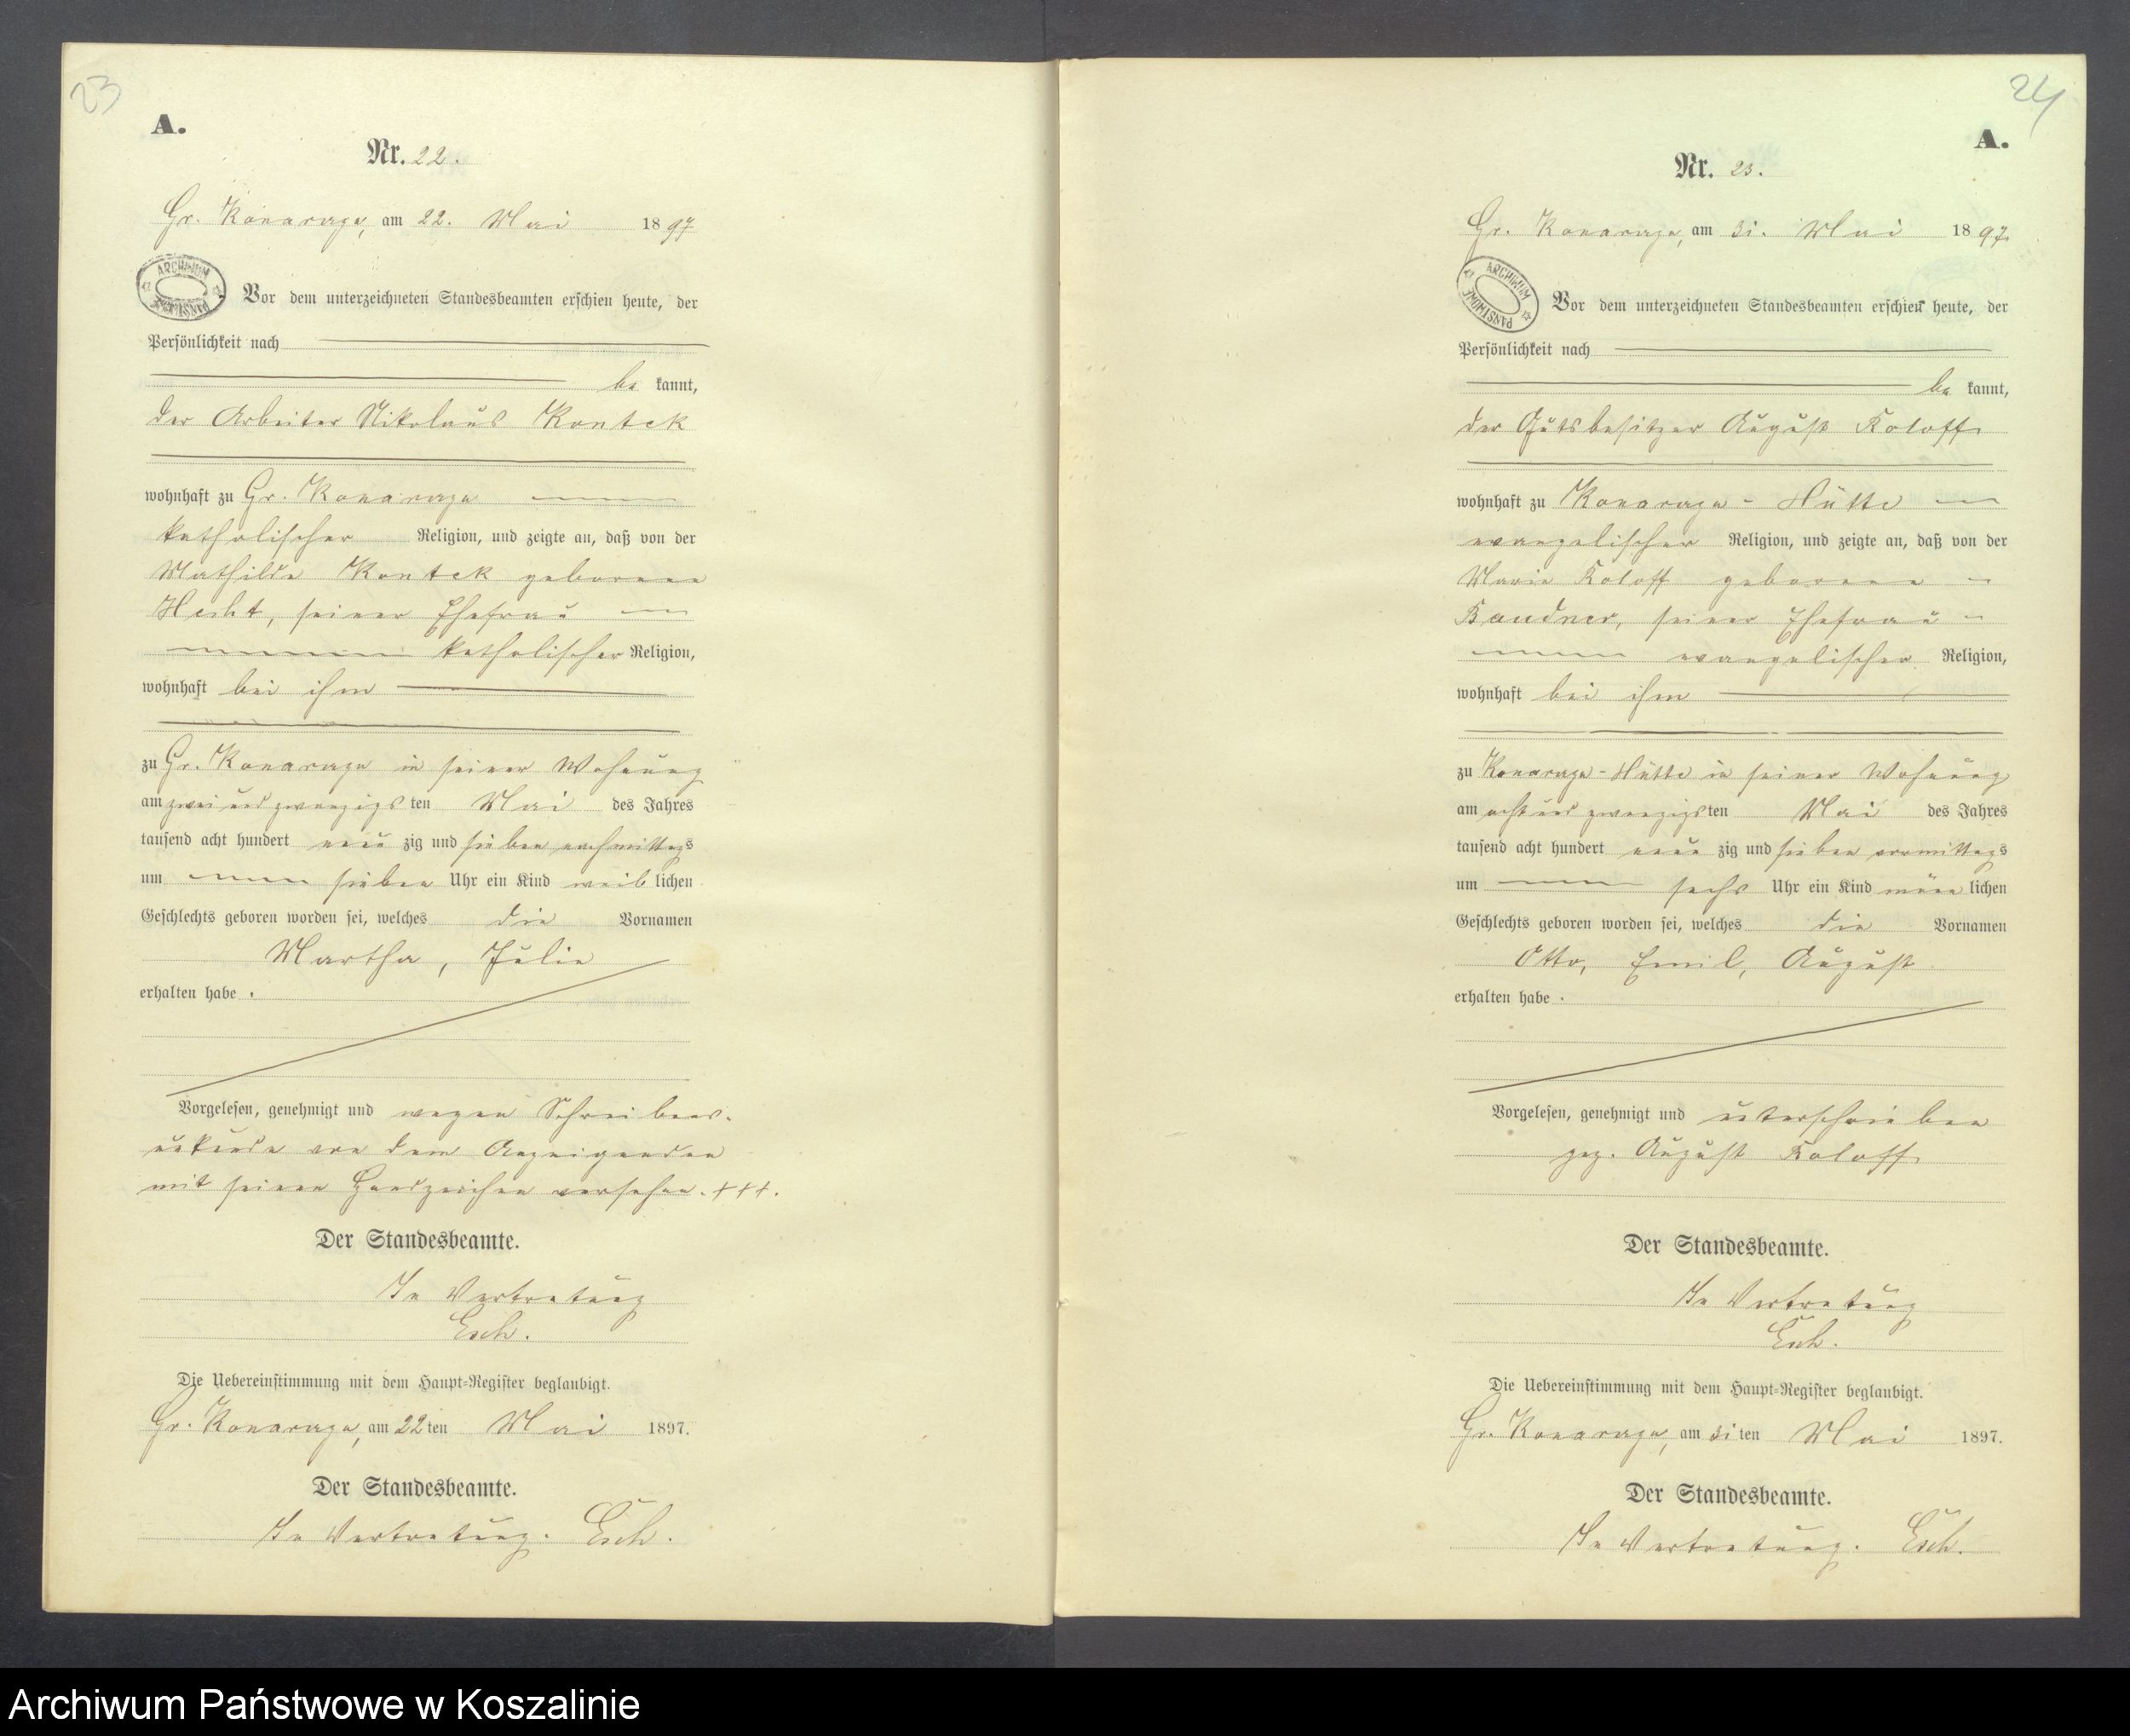 23
A.
Nr. 22.
Gr. Konarczyn, am 22. Mai 1897
ARCHIWUM PAŃSTWOWE
Vor dem unterzeichneten Standesbeamten erschien heute, der
Persönlichkeit nach
be kannt,
der Arbeiter Nikolaus Kontek
wohnhaft zu Gr. Konarczyn
katholischer Religion, und zeigte an, daß von der
Mathilde Kontek geborene
Hecht, seiner Ehefrau
katholischer Religion,
wohnhaft bei ihm
zu Gr. Konarczyn in seiner Wohnung
am zwei und zwanzigsten Mai des Jahres
tausend acht hundert neun zig und sieben nachmittags
um sieben Uhr ein Kind weib lichen
Geschlechts geboren worden sei, welches die Vornamen
Martha, Julie
erhalten habe.
Vorgelesen, genehmigt und wegen Schreibens-
unkunde von dem Anzeigenden
mit seinen Handzeichen versehen. +++.
Der Standesbeamte.
In Vertretung
Esch.
Die Uebereinstimmung mit dem Haupt-Register beglaubigt.
Gr. Konarczyn, am 22 ten Mai 1897.
Der Standesbeamte.
In Vertretung. Esch.
24
A.
Nr. 23.
Gr. Konarczyn, am 31. Mai 1897.
ARCHIWUM PAŃSTWOWE
Vor dem unterzeichneten Standesbeamten erschien heute, der
Persönlichkeit nach
be kannt,
der Gutsbesitzer August Koloff
wohnhaft zu Konarczyn-Hütte
evangelischer Religion, und zeigte an, daß von der
Marie Koloff geborene
Bandner, seiner Ehefrau
evangelischer Religion,
wohnhaft bei ihm
zu Konarczyn-Hütte in seiner Wohnung
am acht und zwanzigsten Mai des Jahres
tausend acht hundert neun zig und sieben vormittags
um sechs Uhr ein Kind männ lichen
Geschlechts geboren worden sei, welches die Vornamen
Otto, Emil, August
erhalten habe.
Vorgelesen, genehmigt und unterschrieben
gez. August Koloff.
Der Standesbeamte.
In Vertretung
Esch.
Die Uebereinstimmung mit dem Haupt-Register beglaubigt.
Gr. Konarczyn, am 31 ten Mai 1897.
Der Standesbeamte.
In Vertretung. Esch.
Archiwum Państwowe w Koszalinie